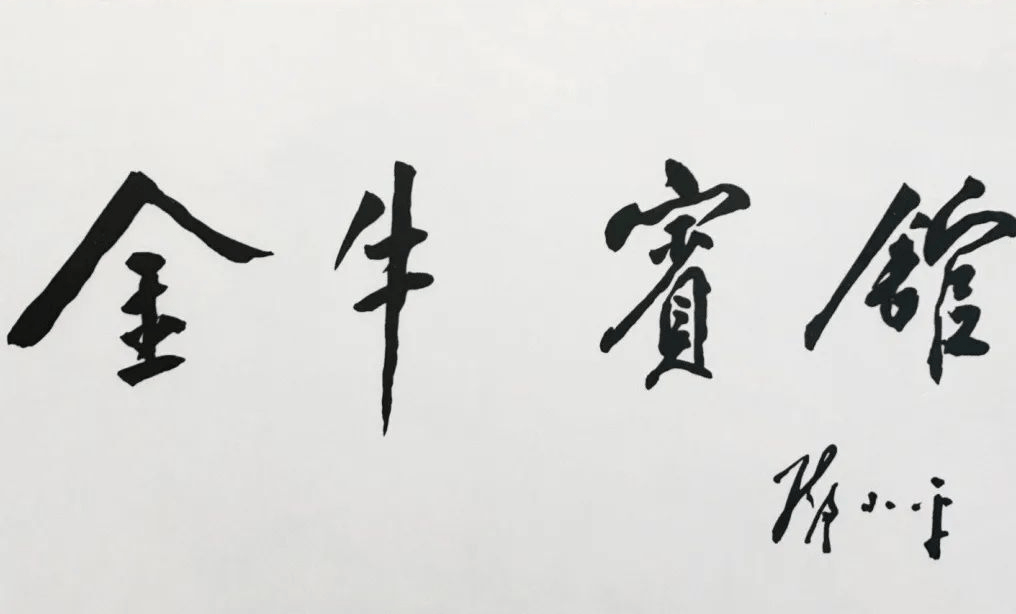 金牛賓館
鄧小平